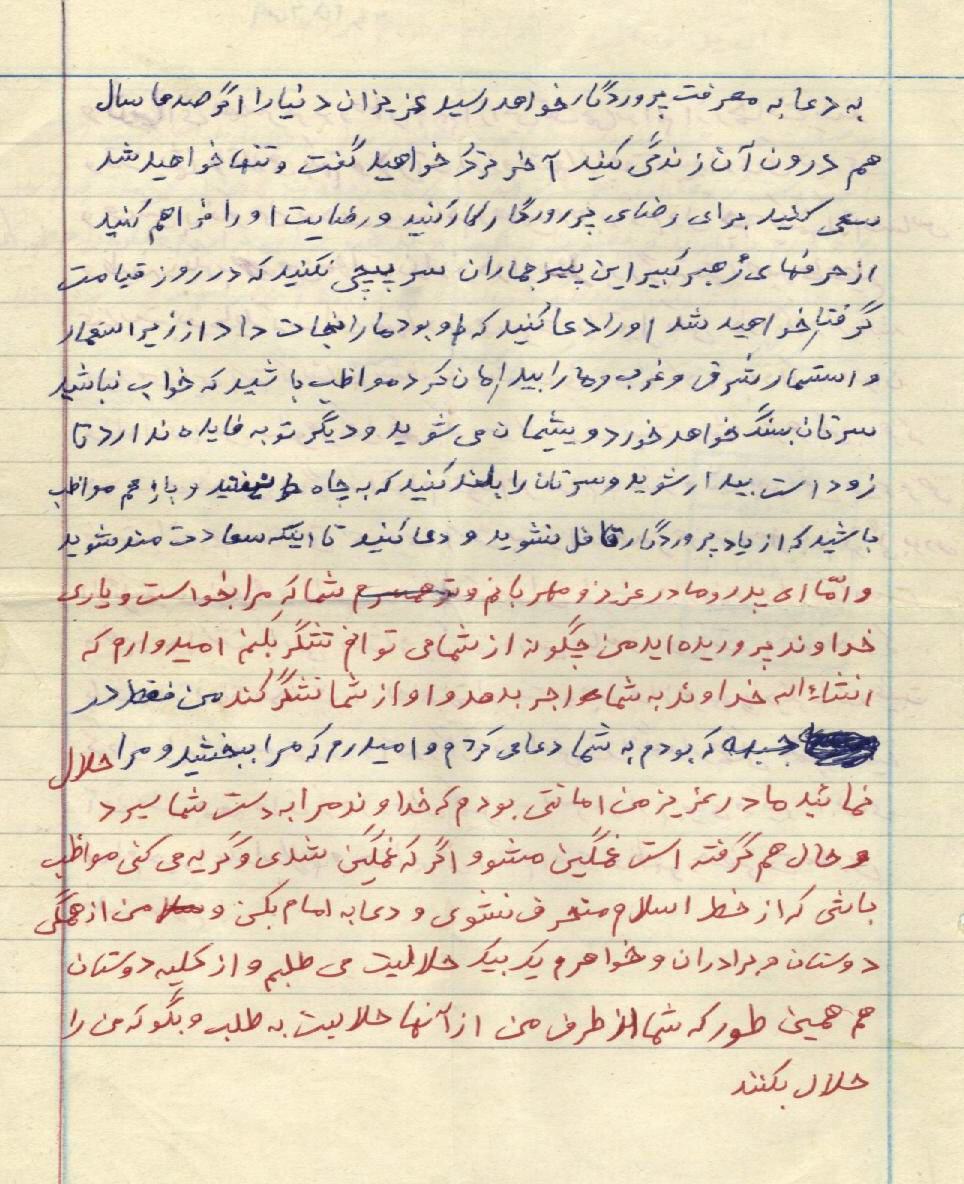 به دعا به معرفت پروردگار خواهد رسید عزیزان دنیا را اگر صدها سال
هم درون آن زندگی کنید آخر ترک خواهید گفت و تنها خواهید شد
سعی کنید برای رضای پروردگار کار کنید و رضایت او را فراهم کنید
از حرفهای رهبر کبیر این پیر جماران سرپیچی نکنید که در روز قیامت
گرفتار خواهید شد او را دعا کنید که او بود ما را نجات داد از زیر استعمار
و استثمار شرق و غرب و ما را بیدارمان کرد مواظب باشید که خواب نباشید
سرتان بسنگ خواهد خورد و پشیمان می شوید و دیگر توبه فایده ندارد تا
زود است بیدار شوید و سرتان را بلند کنید که به چاه نیفتید و باز هم مواظب
باشید که از یاد پروردگار غافل نشوید و دعا کنید تا اینکه سعادت مند شوید
و امّا ای پدر و مادر عزیز و مهربانم و شما که مرا بخواست و یاری
خداوند پروریده اید من چگونه از شما می توانم تشکر بکنم امیدوارم که
انشاءاله خداوند به شما اجر بدهد و او از شما تشکر کند من فقط در
جبهه که بودم به شما دعا می کردم و امیدرم که مرا ببخشید و مرا حلال
نمائید مادر عزیز من امانتی بودم که خداوند مرا به دست شما سپرد
و حال هم گرفته است غمگین مشو و اگر که غمگین شدی و گریه می کنی مواظب
باشی که از خط اسلام منحرف نشوی و دعا به امام بکن و من از همگی
دوستان و برادران و خواهرم یک بیک حلالیت می طلبم و از کلیه دوستان
هم همین طور که شما از طرف من از آنها حلالیت به طلب و بگو که من را
حلال بکنند